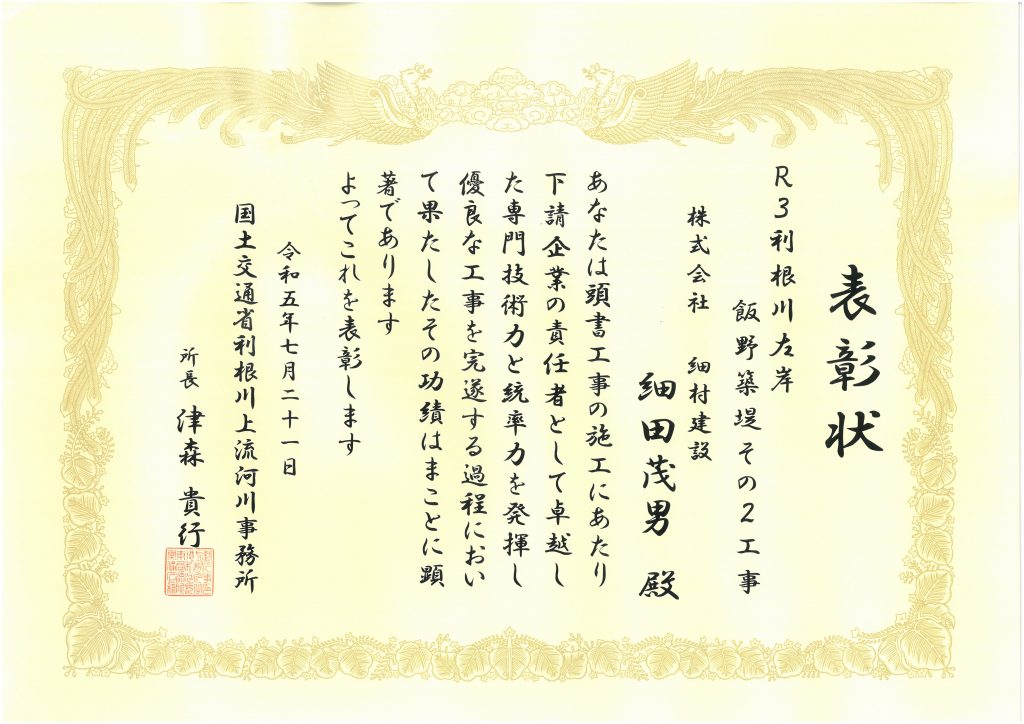 表彰状
R3利根川左岸
飯野築堤その2工事
株式会社 細村建設
細田茂男 殿
あなたは頭書工事の施工にあたり
下請企業の責任者として卓越し
た専門技術力と統率力を発揮し
優良な工事を完遂する過程におい
て果たしたその功績はまことに顕
著であります
よってこれを表彰します
令和五年七月二十一日
国土交通省利根川上流河川事務所
所長 津森 貴行